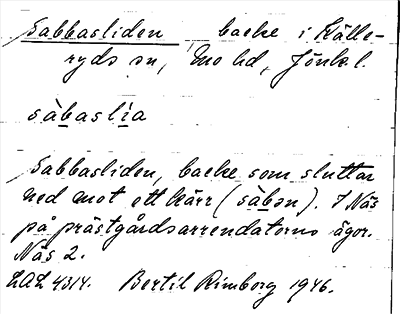 Sabbasliden backe i Källe-
ryds sn, Mo hd, Jönk. l.
sàbaslìa
Sabbasliden, backe som sluttar
ned mot ett kärr (sàbən). I Näs
på prästgårdsarrendatorns ägor.
Näs 2.
LAL 4314. Bertil Rimborg 1946.